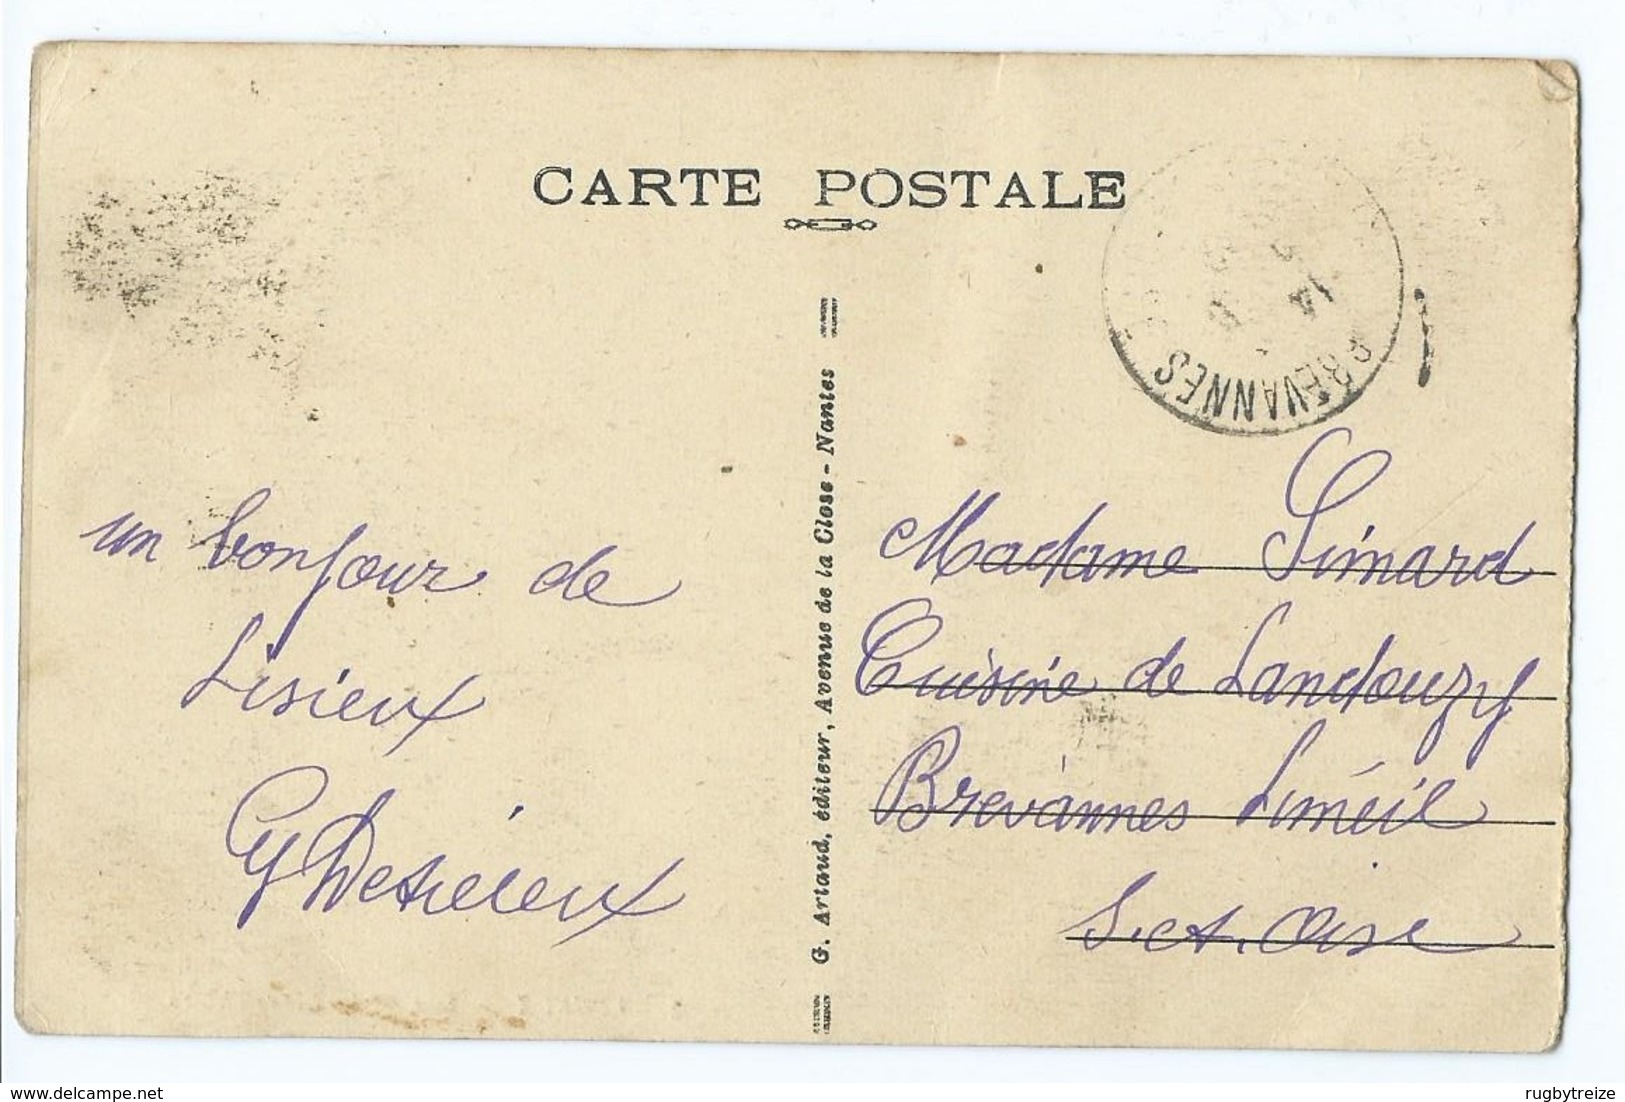 CARTE POSTALE
BRÉVANNES
un bonjour de
Lisieux
G. Artaud, éditeur, Avenue de la Close - Nantes
Madame Simard
Cuisine de Landouzy
Brevánnes Liméil
S. et. Oise
www.delcampe.net
rugbytreize